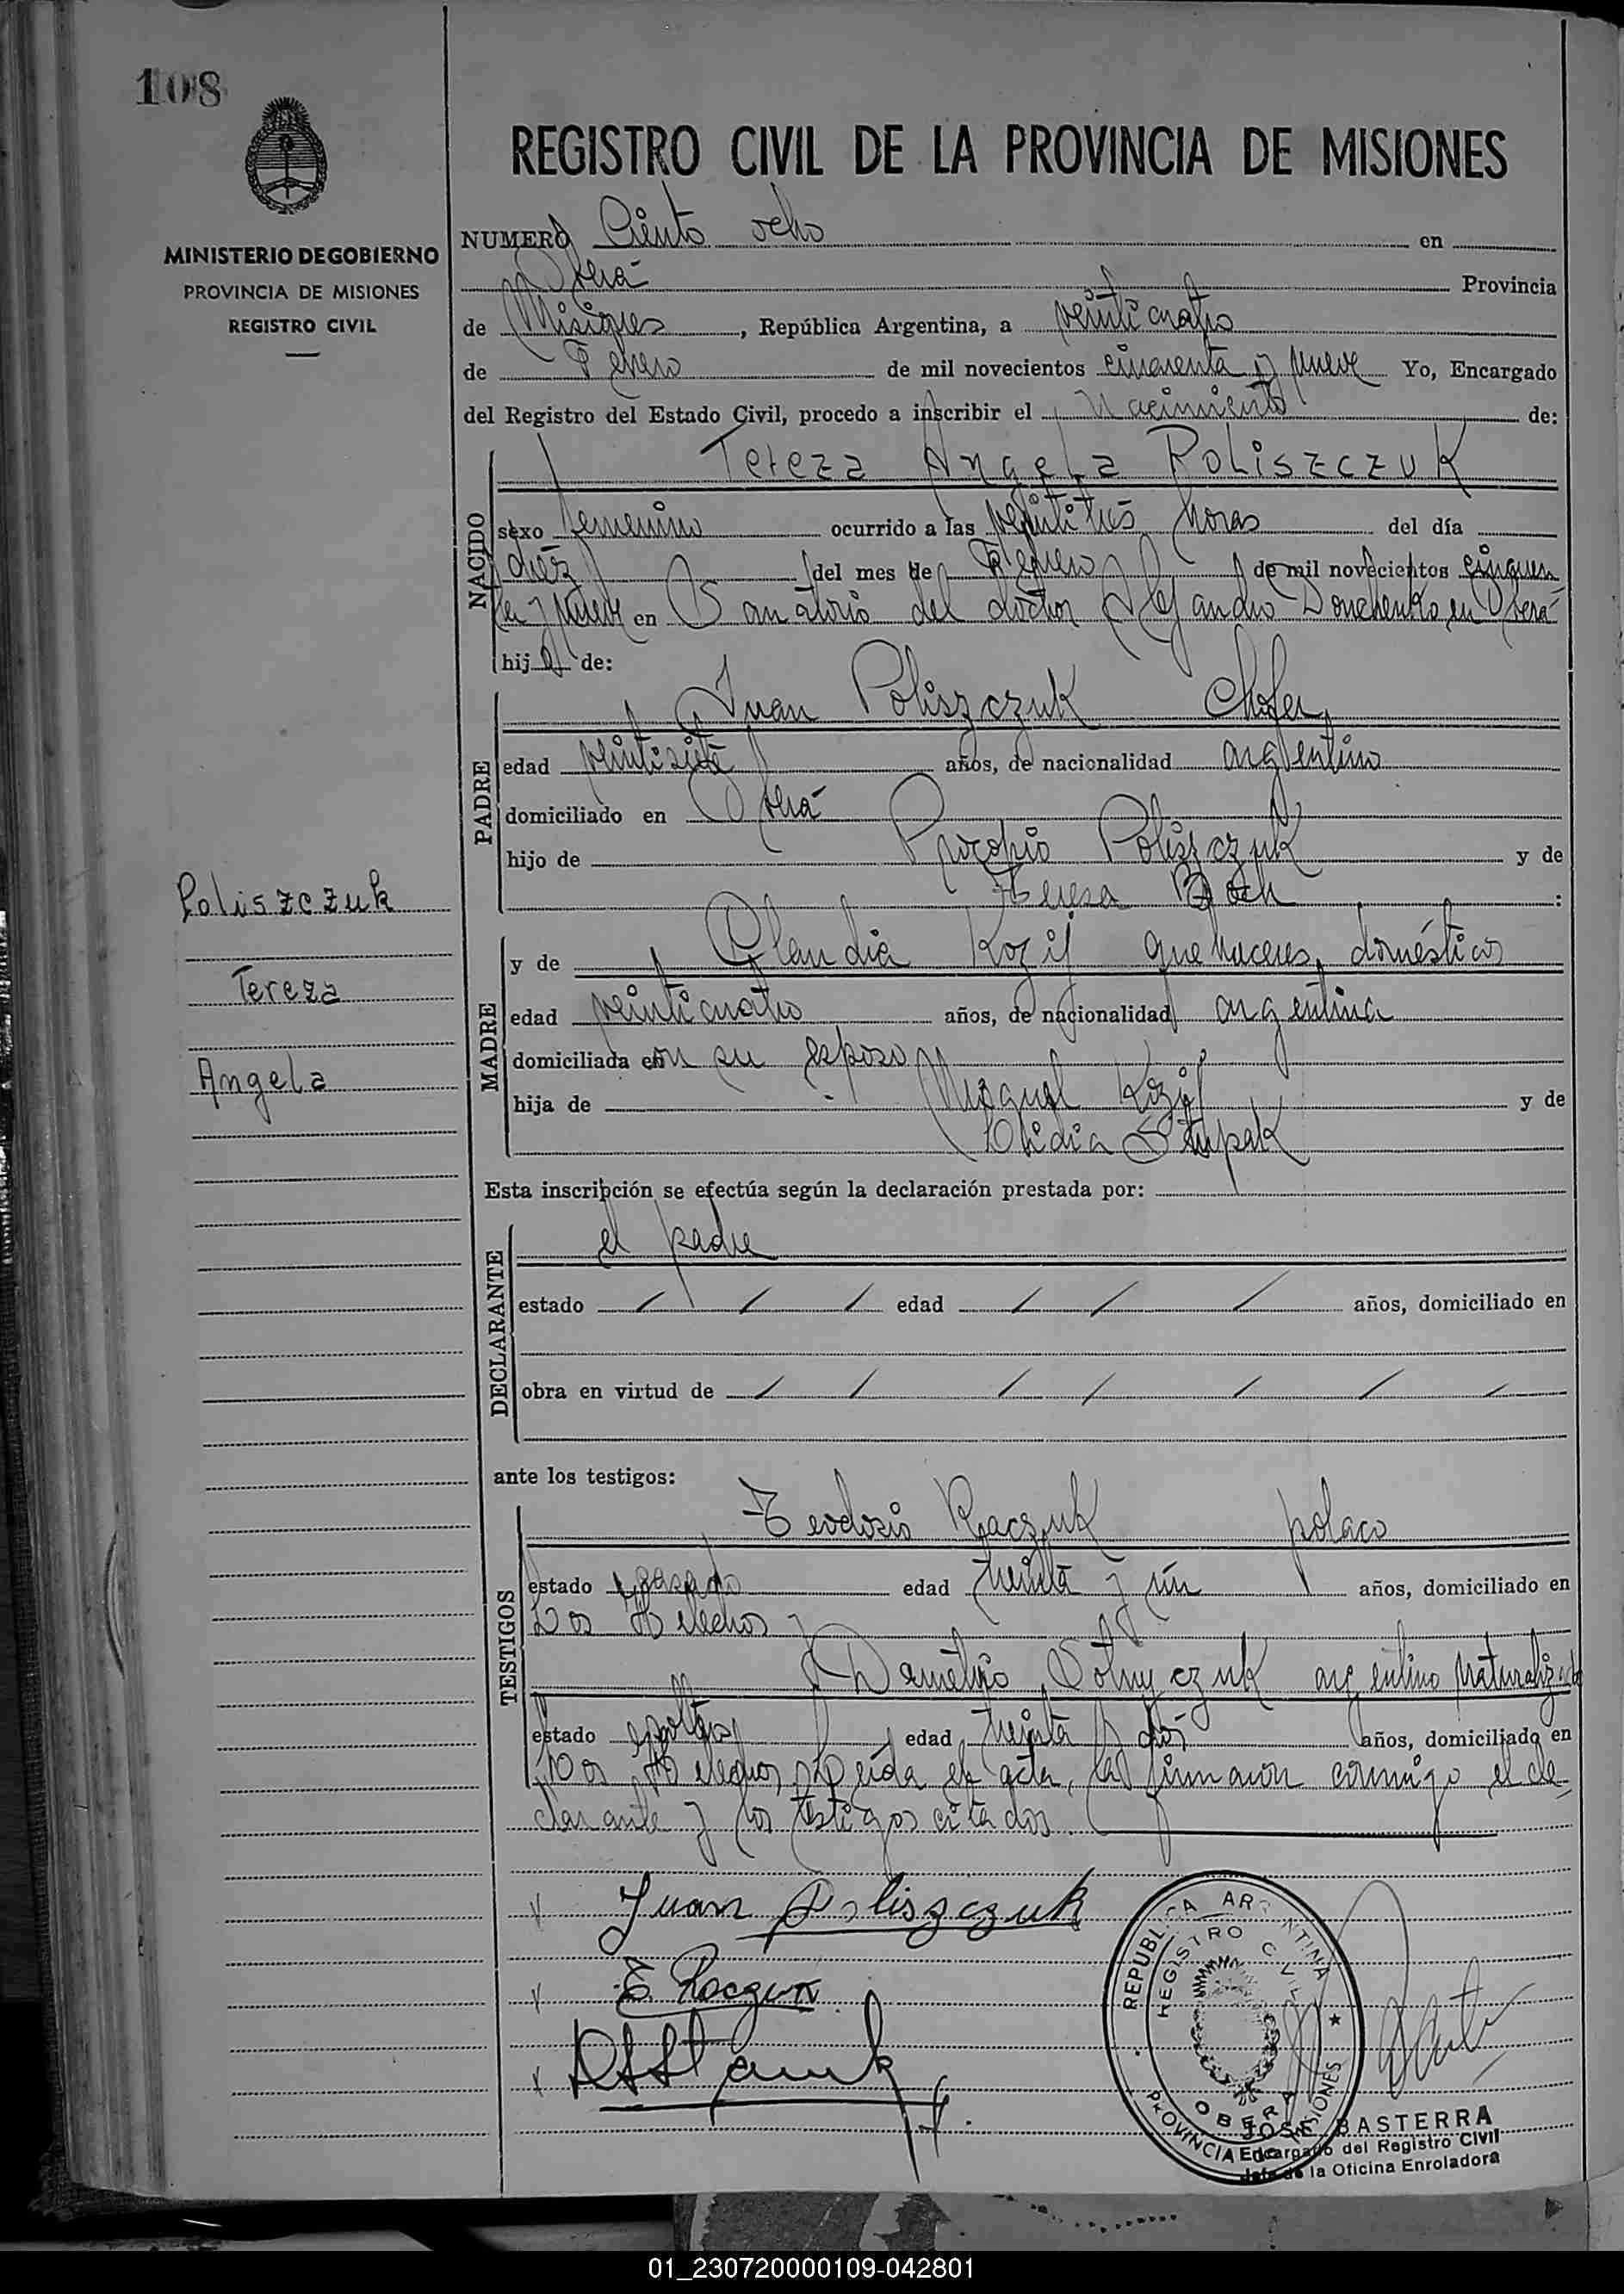 108
REGISTRO CIVIL DE LA PROVINCIA DE MISIONES
MINISTERIO DE GOBIERNO
PROVINCIA DE MISIONES
REGISTRO CIVIL
NUMERO Ciento ocho en
Oberá Provincia
de Misiones, República Argentina, a veinticuatro
de Febrero de mil novecientos cincuenta y nueve Yo, Encargado
del Registro del Estado Civil, procedo a inscribir el Nacimiento de:
NACIDO
Tereza Angela Poliszczuk
sexo femenino ocurrido a las veintitres horas del día
diez del mes de Febrero de mil novecientos cincuen
ta y nueve en Sanatorio del doctor Alejandro Donchenko en Oberá
hija de:
PADRE
Juan Poliszczuk Chofer
edad veintisiete años, de nacionalidad argentino
domiciliado en Oberá
hijo de Procopio Poliszczuk y de
Teresa :
Poliszczuk
Tereza
Angela
MADRE
y de Claudia Kozij quehaceres domésticos
edad veinticuatro años, de nacionalidad argentina
domiciliada en su esposo
hija de Miguel Kozij y de
Stupak
Esta inscripción se efectúa según la declaración prestada por:
DECLARANTE
el padre
estado / / / edad / / / años, domiciliado en
obra en virtud de / / / / / / /
ante los testigos:
TESTIGOS
Teodosio Raczuk polaco
estado casado edad treinta y un años, domiciliado en
Los Helechos y
Demetrio argentino naturalizado
estado soltero edad treinta y dos años, domiciliado en
Los Helechos. Leída el acta, la firmaron conmigo el de-
clarante y los testigos citados.
Juan Poliszczuk
REPUBLICA ARGENTINA
REGISTRO CIVIL
OBERA
PROVINCIA DE MISIONES
JOSE BASTERRA
Encargado del Registro Civil
Jefe de la Oficina Enroladora
01_230720000109-042801